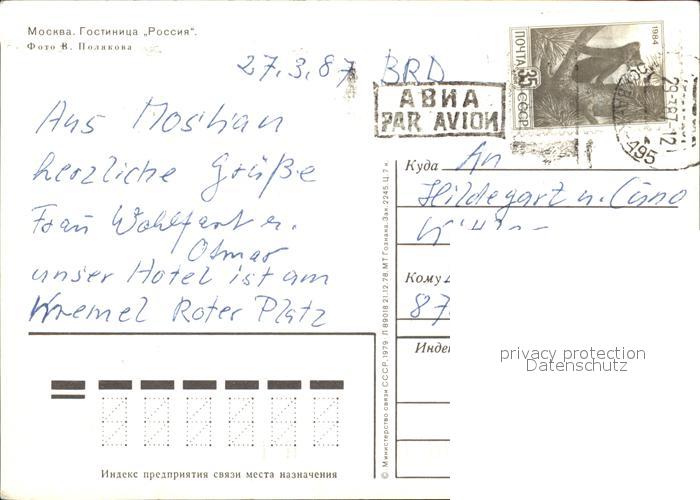 Москва. Гостиница „Россия".
Фото В. Полякова
27.3.87 BRD
Aus Moskau
herzliche Grüße
Frau Wohlfart u.
Otmar
unser Hotel ist am
Kremel Roter Platz
АВИА
PAR AVION
1984
ПОЧТА
35
СССР
495
Куда An
Hildegart u. Cuno
Кому
87
Инде
privacy protection
Datenschutz
© Министерство связи СССР, 1979. Л 89018 21.12.78. МТ Гознака. Зак. 2245. Ц. 7 к.
Индекс предприятия связи места назначения